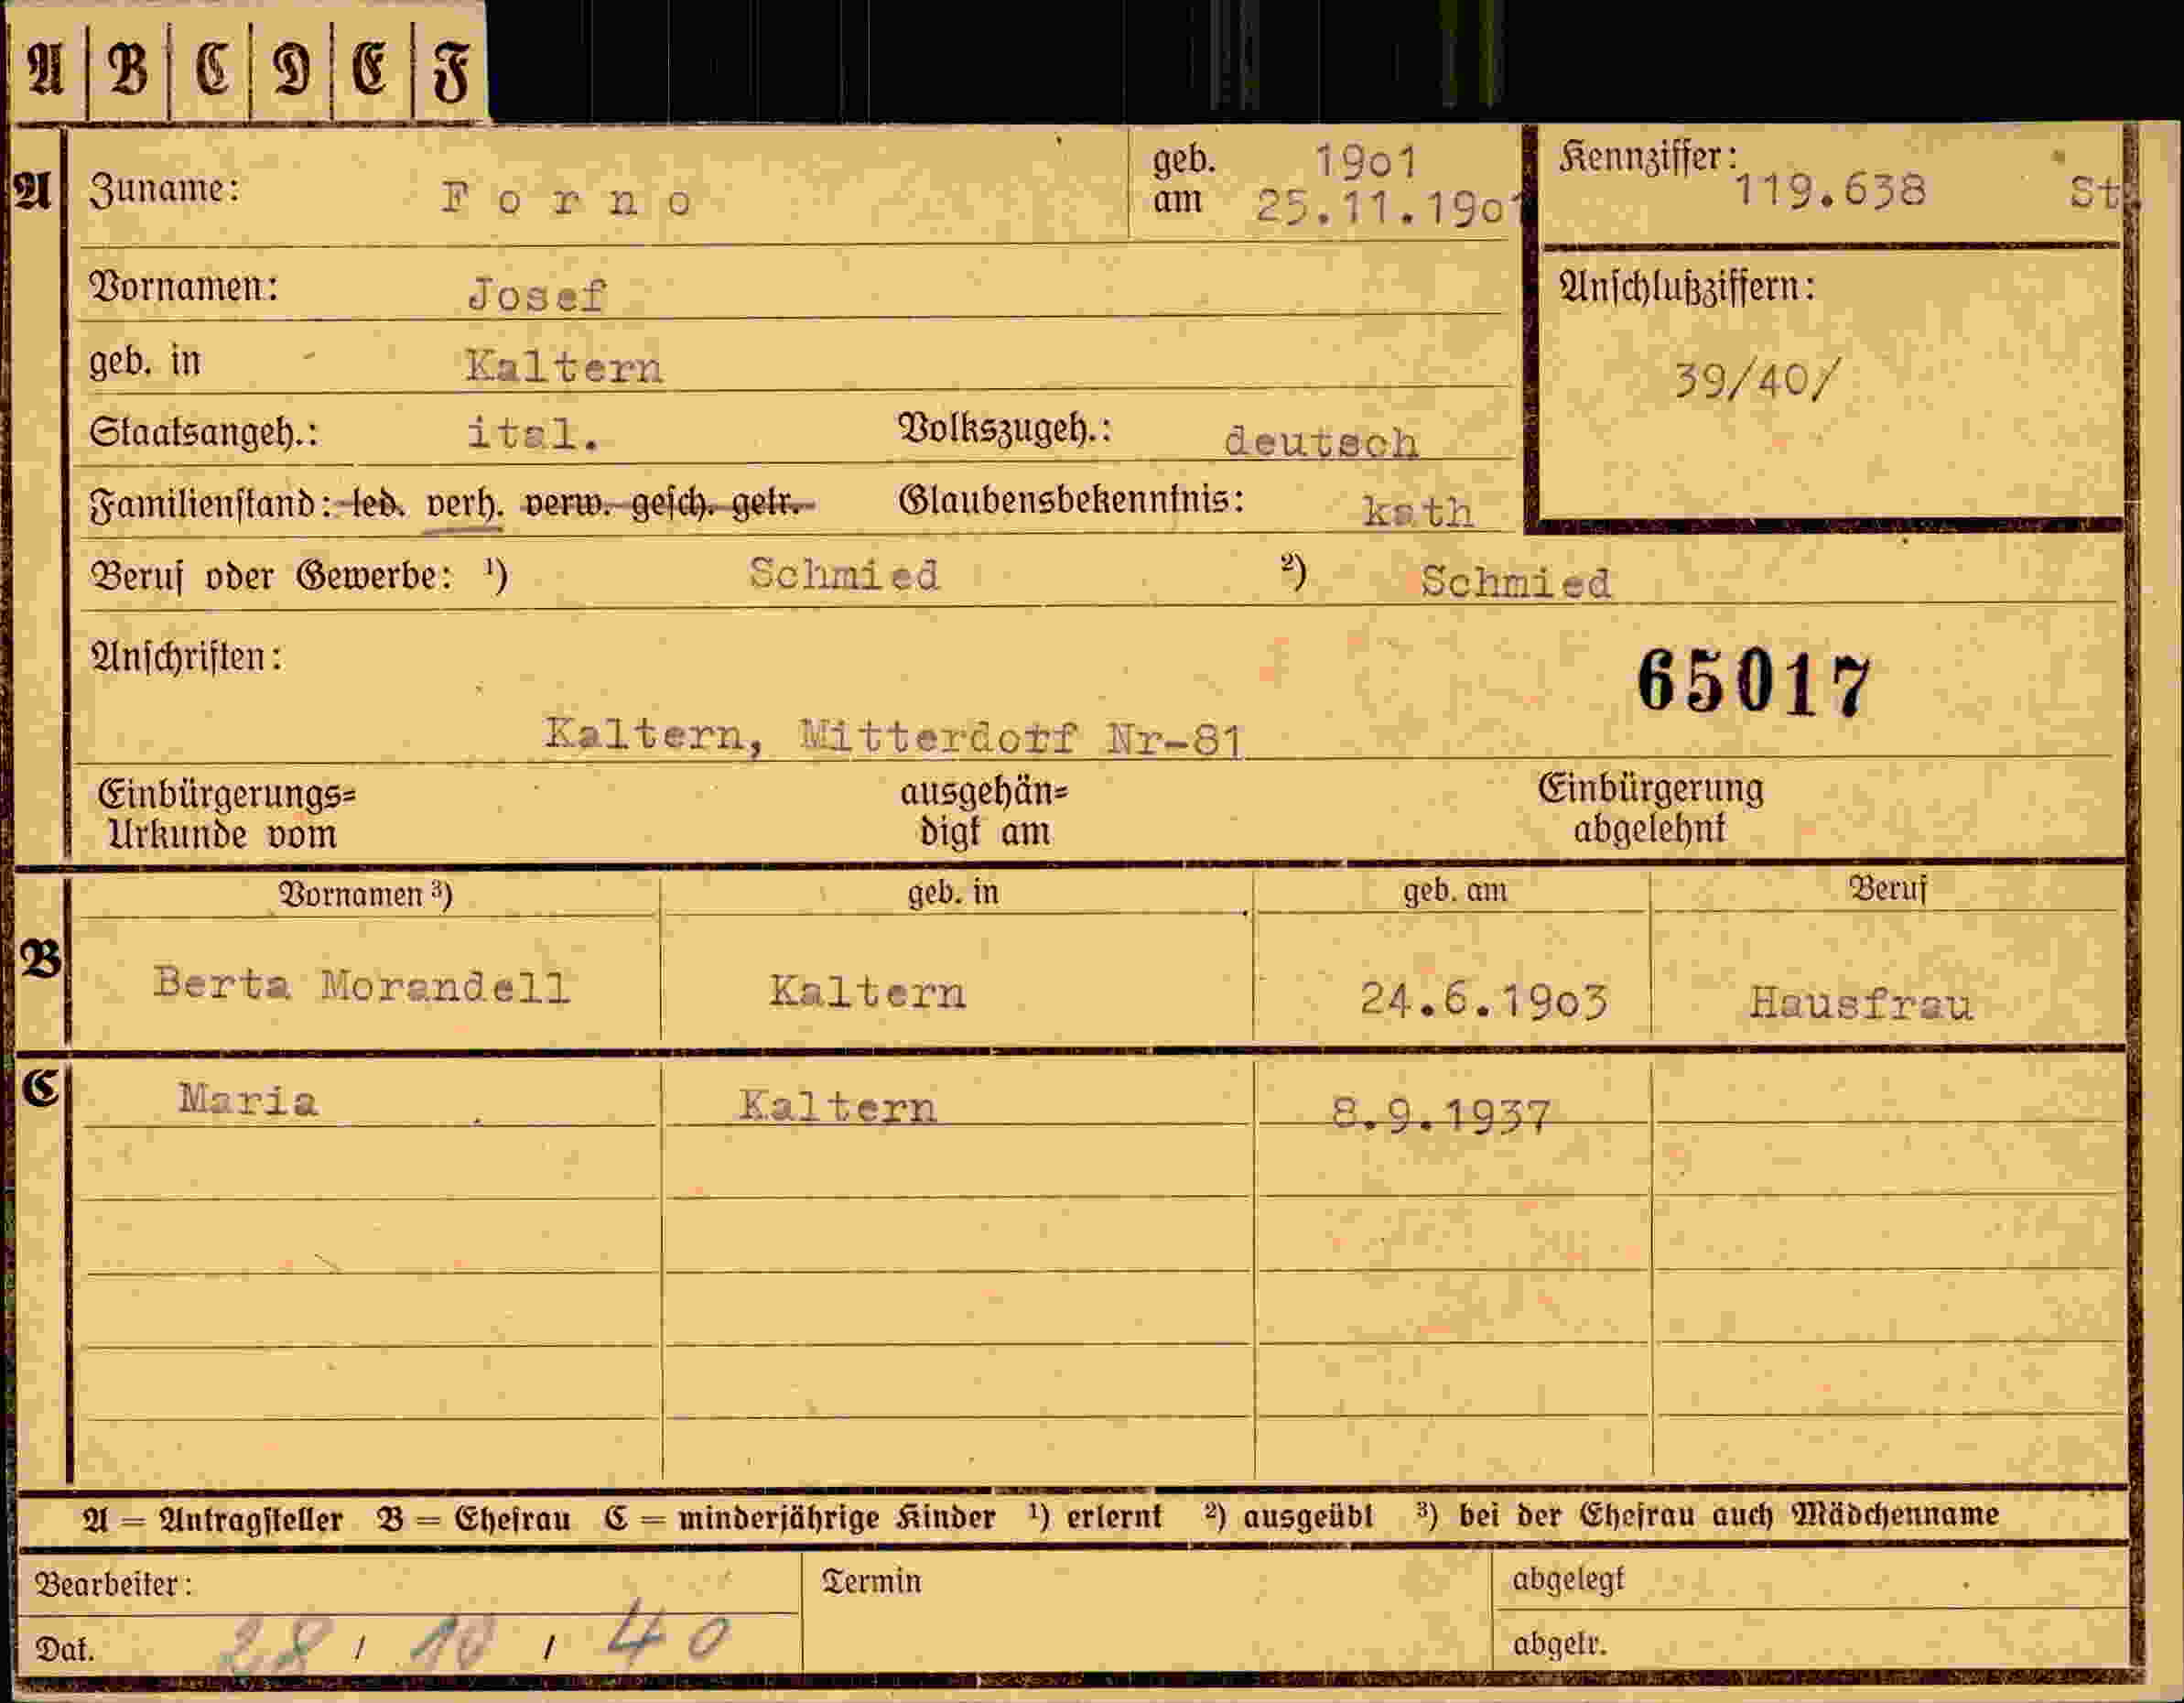 A B C D E F
A Zuname: Forno geb. am 1901 25.11.1901 Kennziffer: 119.638 St
Vornamen: Josef Anschlußziffern:
geb. in Kaltern 39/40/
Staatsangeh.: ital. Volkszugeh.: deutsch
Familienstand: led. verh. verw. gesch. getr. Glaubensbekenntnis: kath
Beruf oder Gewerbe: ¹) Schmied ²) Schmied
Anschriften: 65017
Kaltern, Mitterdorf Nr-81
Einbürgerungs= ausgehän= Einbürgerung
Urkunde vom digt am abgelehnt
Vornamen ³) geb. in geb. am Beruf
B Berta Morandell Kaltern 24.6.1903 Hausfrau
C Maria Kaltern 8.9.1937
A = Antragsteller B = Ehefrau C = minderjährige Kinder ¹) erlernt ²) ausgeübt ³) bei der Ehefrau auch Mädchenname
Bearbeiter: Termin abgelegt
Dat. 28 / 10 / 40 abgetr.